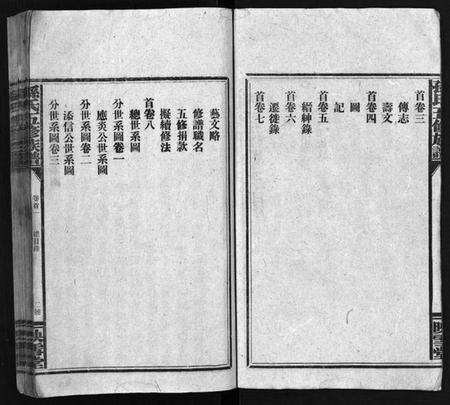 首卷三
傳志
壽文
首卷四
圖
記
首卷五
縉紳錄
首卷六
遷徙錄
首卷七
藝文略
修譜職名
五修捐款
擬續修法
首卷八
總世系圖
分世系圖卷一
應炎公世系圖
分世系圖卷二
添信公世系圖
分世系圖卷三
孫氏五修族譜
卷首一
總目錄
映雪堂